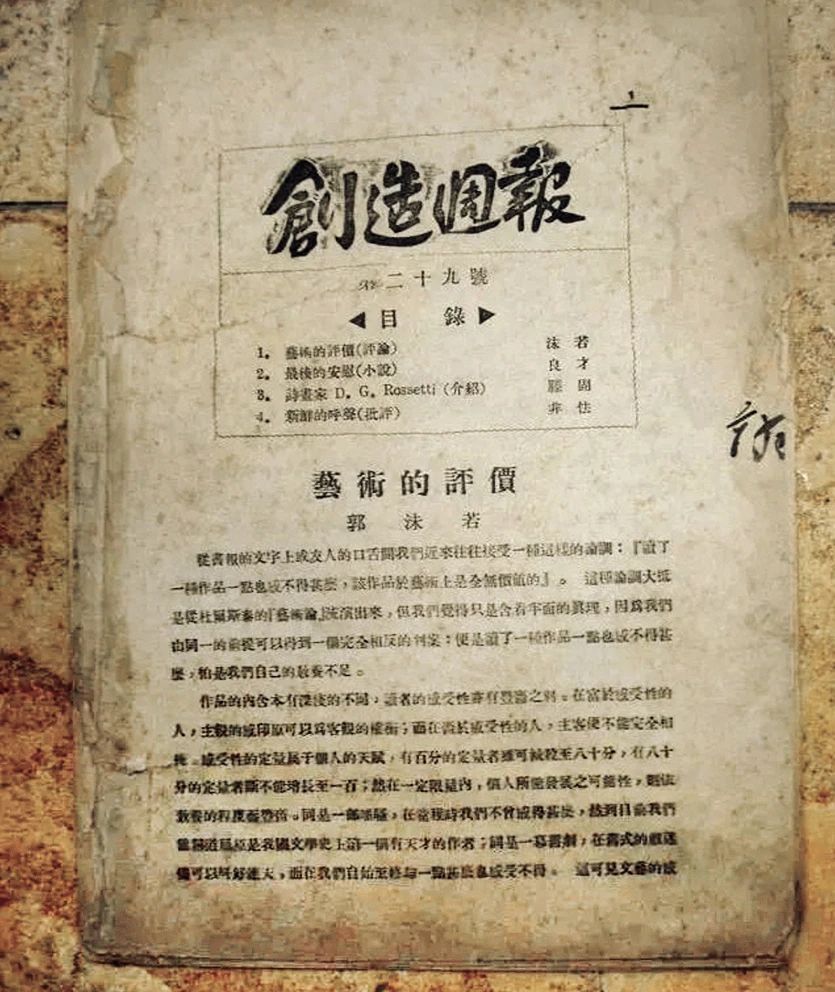 創造週報
第二十九號
目 錄
1。 藝術的評價(評論) 沫 若
2。 最後的安慰(小說) 良 才
3。 詩畫家 D。G。Rossetti(介紹) 滕 固
4。 新鮮的呼聲(批評) 非 怯
藝術的評價
郭 沫 若
從書報的文字上或友人的口舌間我們近來往往接受一種這樣的論調:『讀了
一種作品一點也感不得甚麼,該作品於藝術上是全無價値的』。 這種論調大抵
是從杜爾斯泰的『藝術論』流演出來,但我們覺得只是含着半面的眞理,因爲我們
由同一的前提可以得到一個完全相反的判案:便是讀了一種作品一點也感不得甚
麼,怕是我們自己的敎養不足。
作品的內含本有深淺的不同,讀者的感受性亦有豐嗇之別。在富於感受性的
人,主觀的感印原可以爲客觀的權衡;而在嗇於感受性的人,主客便不能完全相
感受性的定量屬于個人的天賦,有百分的定量者雖可減殺至八十分,有八十
分的定量者斷不能增長至一百;然在一定限量內,個人所能發展之可能性,則依
敎養的程度而豐嗇。同是一部離騷,在童稚時我們不曾感得甚麼,然到目前我們
能 道屈原是我國文學史上第一個有天才的作者;同是一幕舊劇,在舊式的戲迷
儘可以叫好連天,而在我們自始至終 一點甚麼也感受不得。 這可見文藝的感